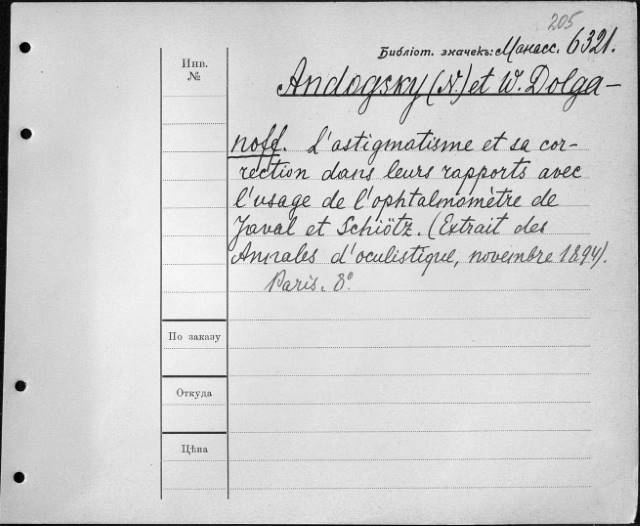 205
Библіот. значекъ: Манасс. 6321.
Инв.
№
Andogsky (N.) et W. Dolga-
noff. L'astigmatisme et sa cor-
rection dans leurs rapports avec
l'usage de l'ophtalmomètre de
Javal et Schiötz. (Extrait des
Annales d'oculistique, novembre 1894).
Paris. 8°
По заказу
Откуда
Цѣна